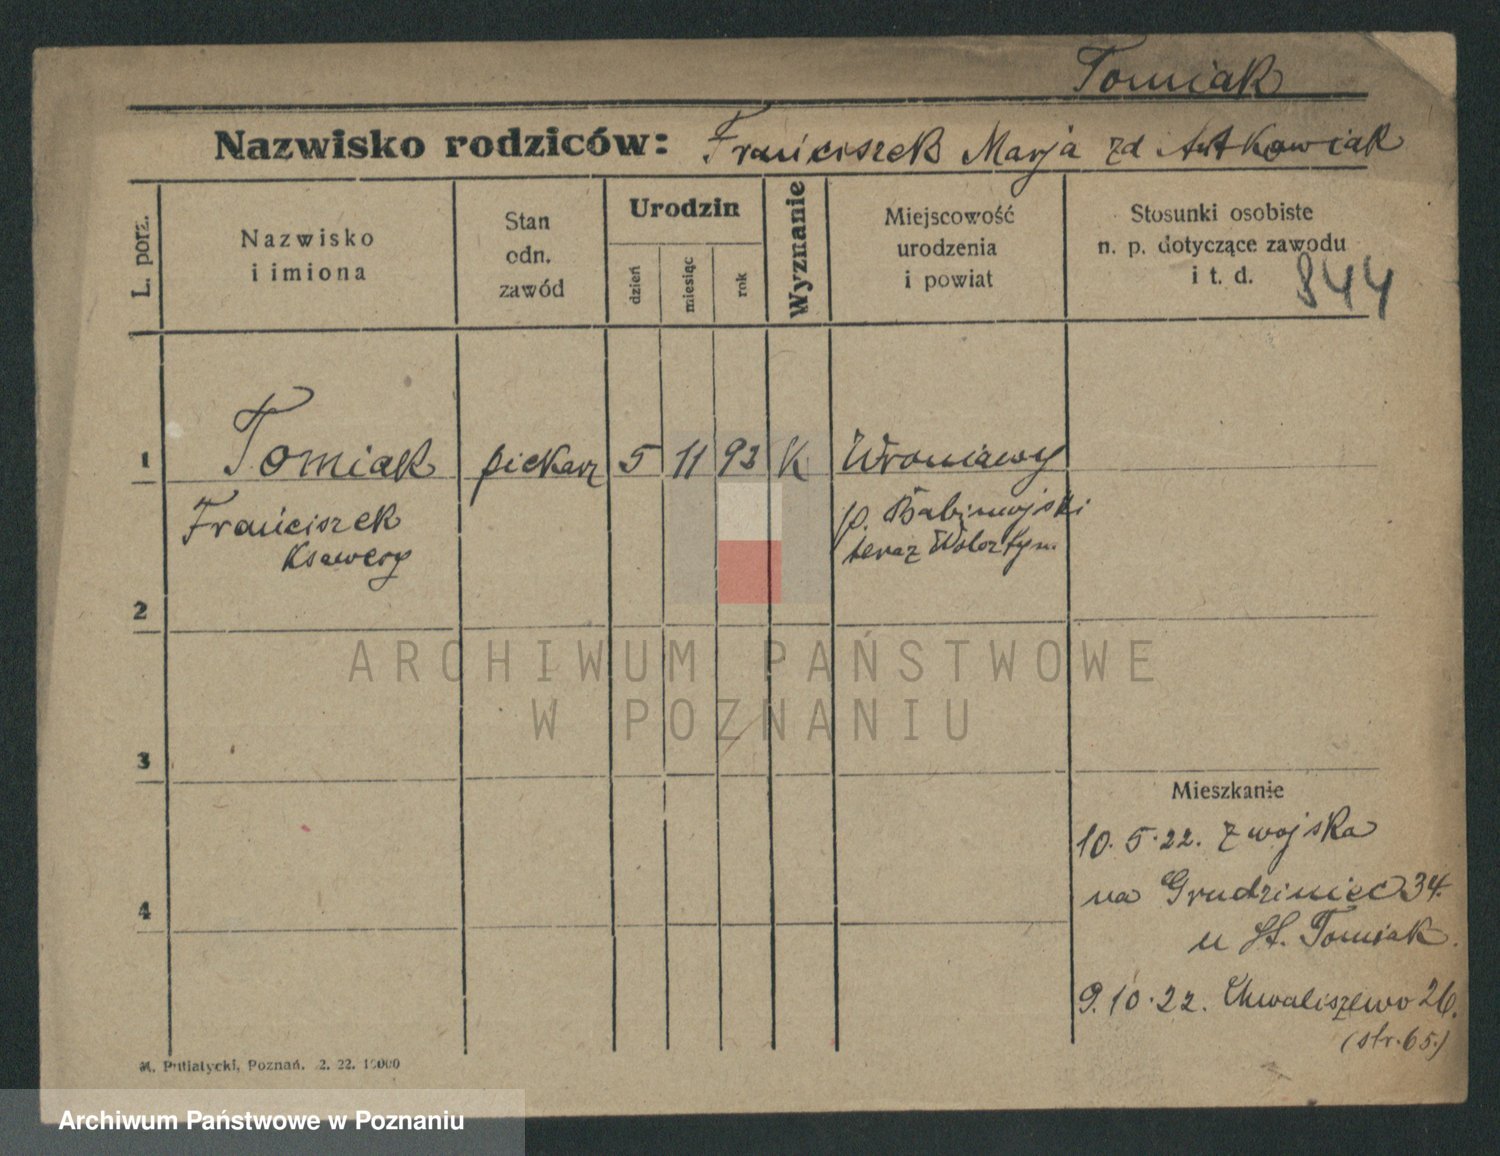 Tomiak
Nazwisko rodziców: Franciszek Marja zd Antkowiak
L. porz.
Nazwisko
i imiona
Stan
odn.
zawód
Urodzin
dzień
miesiąc
rok
Wyznanie
Miejscowość
urodzenia
i powiat
Stosunki osobiste
n. p. dotyczące zawodu
i t. d.
844
1 Tomiak piekarz 5 11 93 K Wroniawy
Franciszek
Ksawery
p. Babimojski
teraz Wolsztyn.
2
ARCHIWUM PAŃSTWOWE
W POZNANIU
3
Mieszkanie
10. 5. 22. z wojska
na Grudziniec 34.
u St. Tomiak.
4
9. 10. 22. Chwaliszewo 26.
(str. 65.)
M. Putiatycki, Poznań. 2. 22. 10000
Archiwum Państwowe w Poznaniu